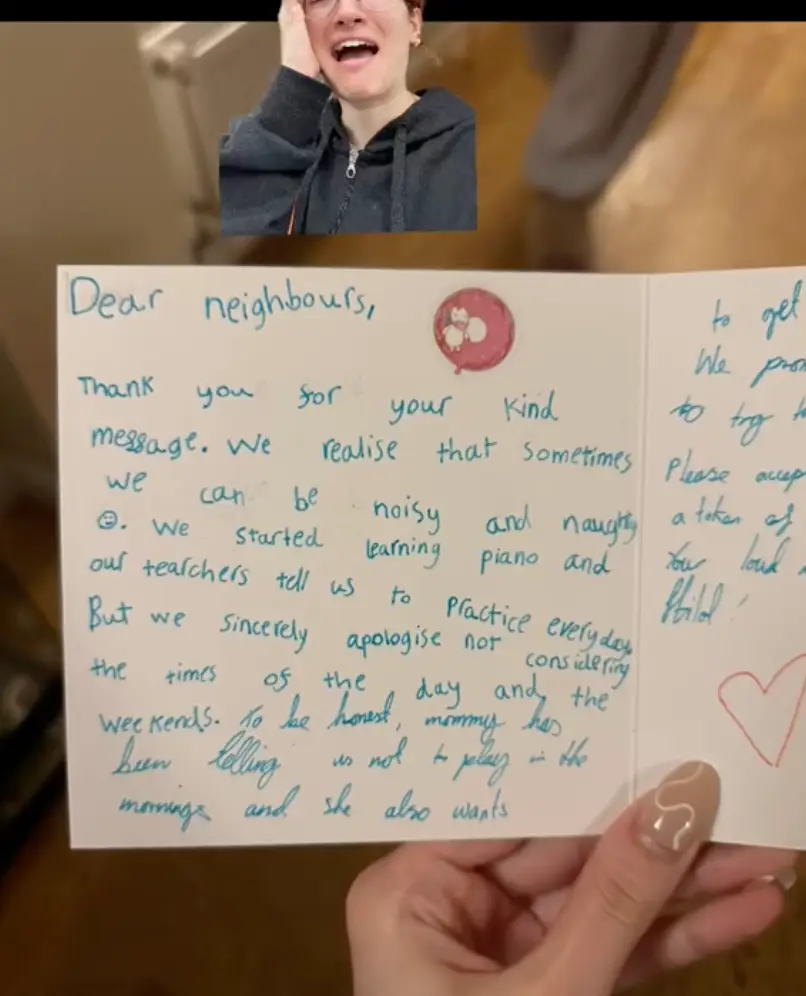 Dear neighbours,
Thank you for your kind
message. We realise that sometimes
we can be noisy and naughty
☺. We started learning piano and
our tearchers tell us to practice everyday
But we sincerely apologise not considering
the times of the day and the
weekends. To be honest, mommy has
been telling us not to play in the
mornings and she also wants
to get
We
to try
Please
a token of
Your loud